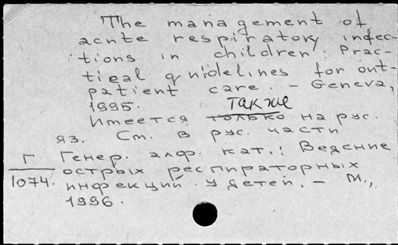 The management of
acute respiratory infec-
tions in children: Prac-
tical guidelines for out-
patient care. - Geneva,
1995.
также
Имеется только на рус.
яз. См. в рус. части
Генер. алф. кат.: Ведение
острых респираторных
инфекций у детей. - М.,
1996.
Г
1074.